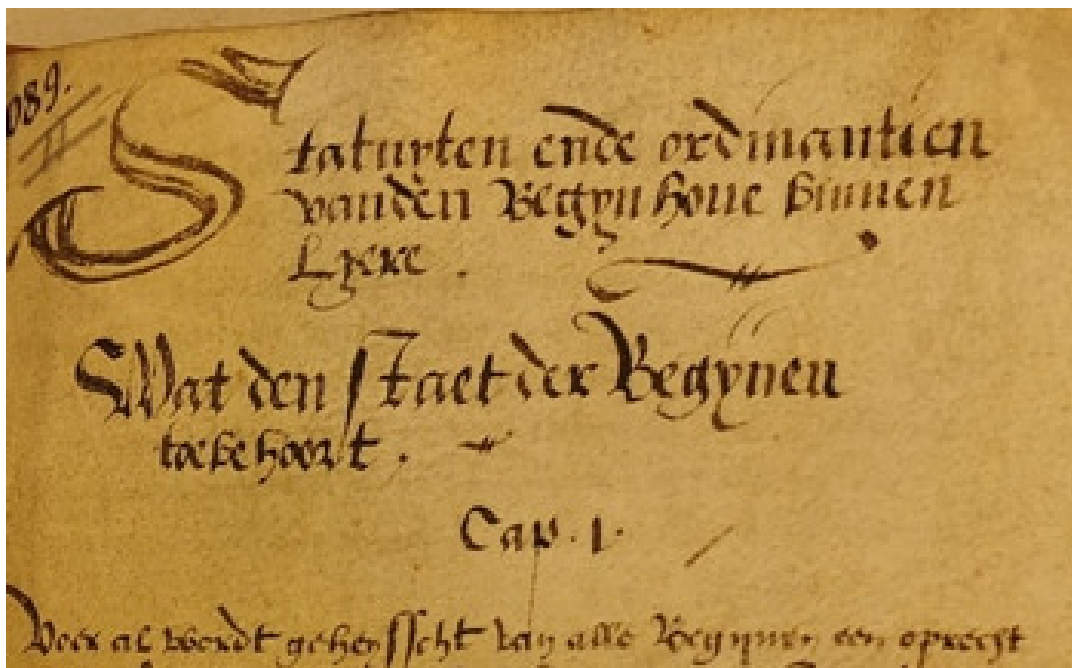 089.
II
Statuyten ende ordinantien
vanden Begynhoue binnen
Lyere .
Wat den staet der Begynen
toebehoort .
Cap . 1 .
Voer al wordt geheysscht van alle Begynen een oprecht